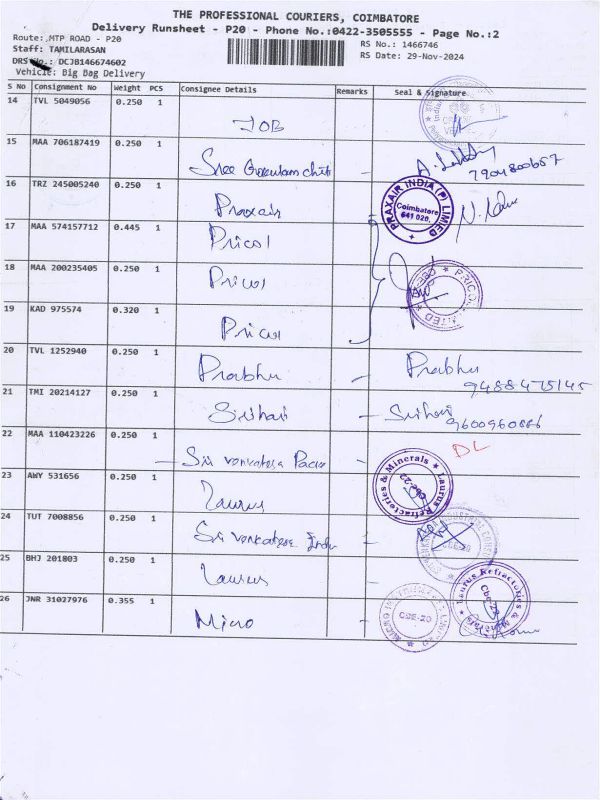 THE PROFESSIONAL COURIERS, COIMBATORE
Delivery Runsheet - P20 - Phone No.:0422-3505555 - Page No.:2
Route: MTP ROAD - P20
RS No.: 1466746
Staff: TAMILARASAN
RS Date: 29-Nov-2024
DRS No.: DCJB146674602
Vehicle: Big Bag Delivery
S No Consignment No Weight PCS Consignee Details Remarks Seal & Signature
14 TVL 5049056 0.250 1
JOB
15 MAA 706187419 0.250 1
Sree
7904800657
16 TRZ 245005240 0.250 1
Praxair
PRAXAIR INDIA (P) LIMITED
Coimbatore
641 020.
17 MAA 574157712 0.445 1
Pricol
18 MAA 200235405 0.250 1
Pricol
19 KAD 975574 0.320 1
Pricol
20 TVL 1252940 0.250 1
Prabhu - Prabhu
9488475145
21 TMI 20214127 0.250 1
Srihari - Srihari
9600960666
22 MAA 110423226 0.250 1
Sri venkatesa
DL
23 AWY 531656 0.250 1
Laurus
Laurus Refractories & Minerals
Cbe-22
24 TUT 7008856 0.250 1
Sri venkatesa Indu
25 BHJ 201803 0.250 1
Laurus
Laurus Refractories & Minerals
Cbe-22
26 JNR 31027976 0.355 1
Micro
CBE-20